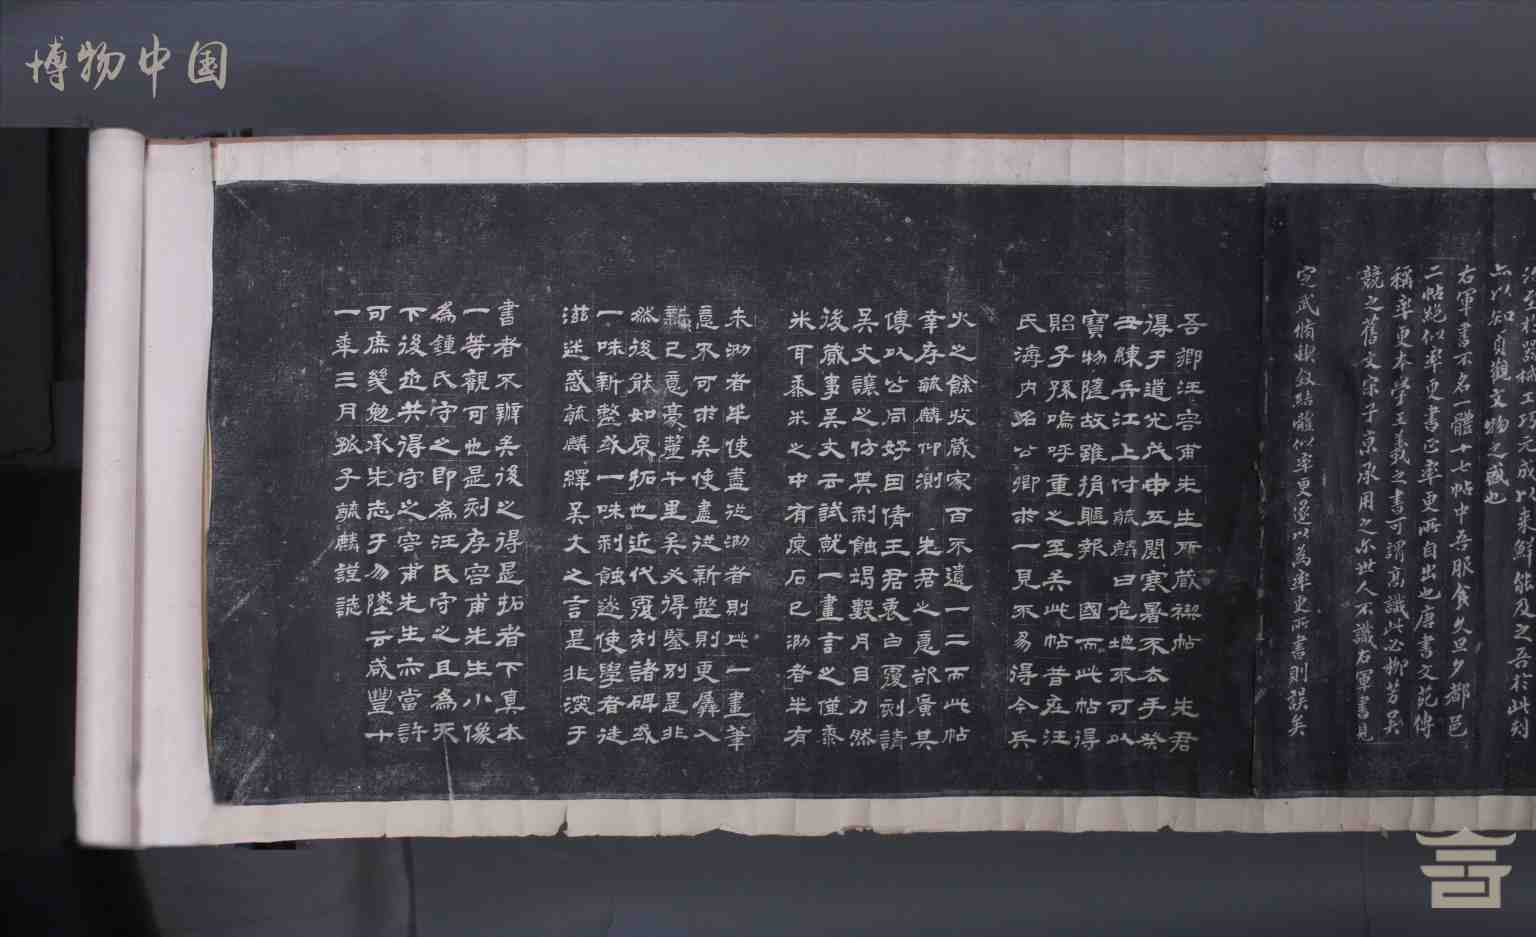 博物中国
以知貞觀文物之盛也
右軍書不名一體十七帖中吾服食久旦夕都邑
二帖絕似率更書正率更所自出也唐書文苑傳
稱率更本學王羲之書可謂高識此必柳芳吳
兢之舊文宋子京承用之尔世人不識右軍書見
定武脩禊敘結體似率更遂以為率更所書則誤矣
吾鄉汪容甫先生所藏禊帖 先君
得于道光戊申五閱寒暑不去手癸
丑練兵江上付毓麟曰危地不可以
寶物隨故雖捐軀報 國而此帖得
貽子孫嗚呼重之至矣此帖昔在汪
氏海內名公卿求一見不易得今兵
火之餘收藏家百不遺一二而此帖
幸存毓麟仰測 先君之意欲廣其
傳以公同好因倩王君袁白覆刻請
吳丈讓之仿其剝蝕竭數月目力然
後蕆事吳丈云試就一畫言之僅黍
米耳黍米之中有原石已泐者半有
未泐者半使盡從泐者則此一畫筆
意不可求矣使盡從新整則更羼入
新己意豪釐千里矣必得鑒別是非
然後能如原拓也近代覆刻諸碑或
一味新整或一味剝蝕遂使學者徒
滋迷惑毓麟繹吳丈之言是非深于
書者不辦矣後之得是拓者下真本
一等觀可也是刻存容甫先生小像
為鍾氏守之即為汪氏守之且為天
下後世共得守之容甫先生亦當許
可庶幾勉承先志于勿墜云咸豐十
一年三月孤子毓麟謹誌